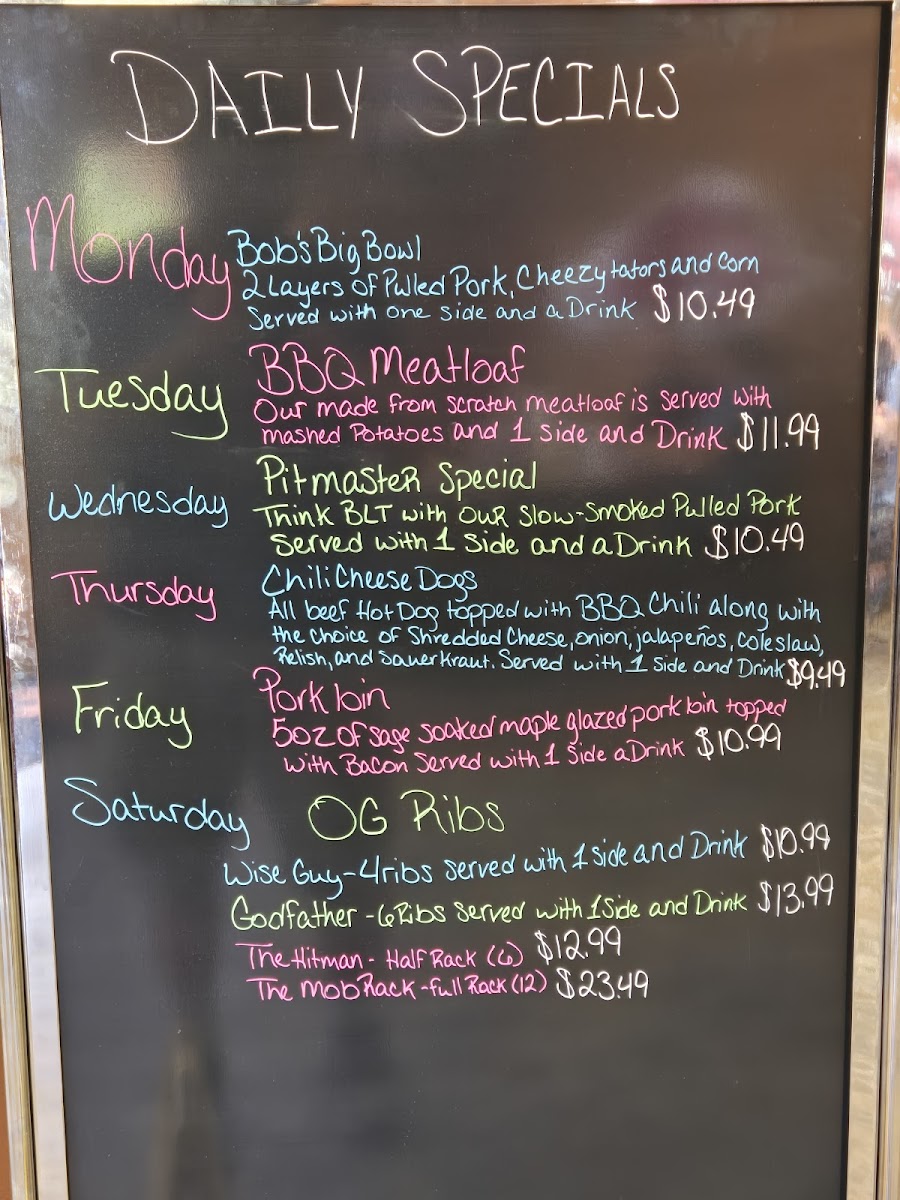 DAILY SPECIALS
Monday
Bob's Big Bowl
2 Layers of Pulled Pork, Cheezy tators and Corn
Served with one Side and a Drink $10.49
Tuesday
BBQ Meatloaf
Our made from scratch meatloaf is served with
mashed Potatoes and 1 Side and Drink $11.99
Wednesday
Pitmaster Special
Think BLT with our Slow-Smoked Pulled Pork
Served with 1 Side and a Drink $10.49
Thursday
Chili Cheese Dogs
All beef Hot Dog topped with BBQ Chili along with
the choice of Shredded Cheese, onion, jalapeños, coleslaw,
Relish, and Sauerkraut. Served with 1 Side and Drink $9.49
Friday
Pork loin
5oz of sage soaked maple glazed pork loin topped
with Bacon Served with 1 Side a Drink $10.99
Saturday
OG Ribs
Wise Guy-4ribs served with 1 side and Drink $10.99
Godfather -6 Ribs Served with 1 Side and Drink $13.99
The Hitman - Half Rack (6) $12.99
The Mob Rack -full Rack (12) $23.49